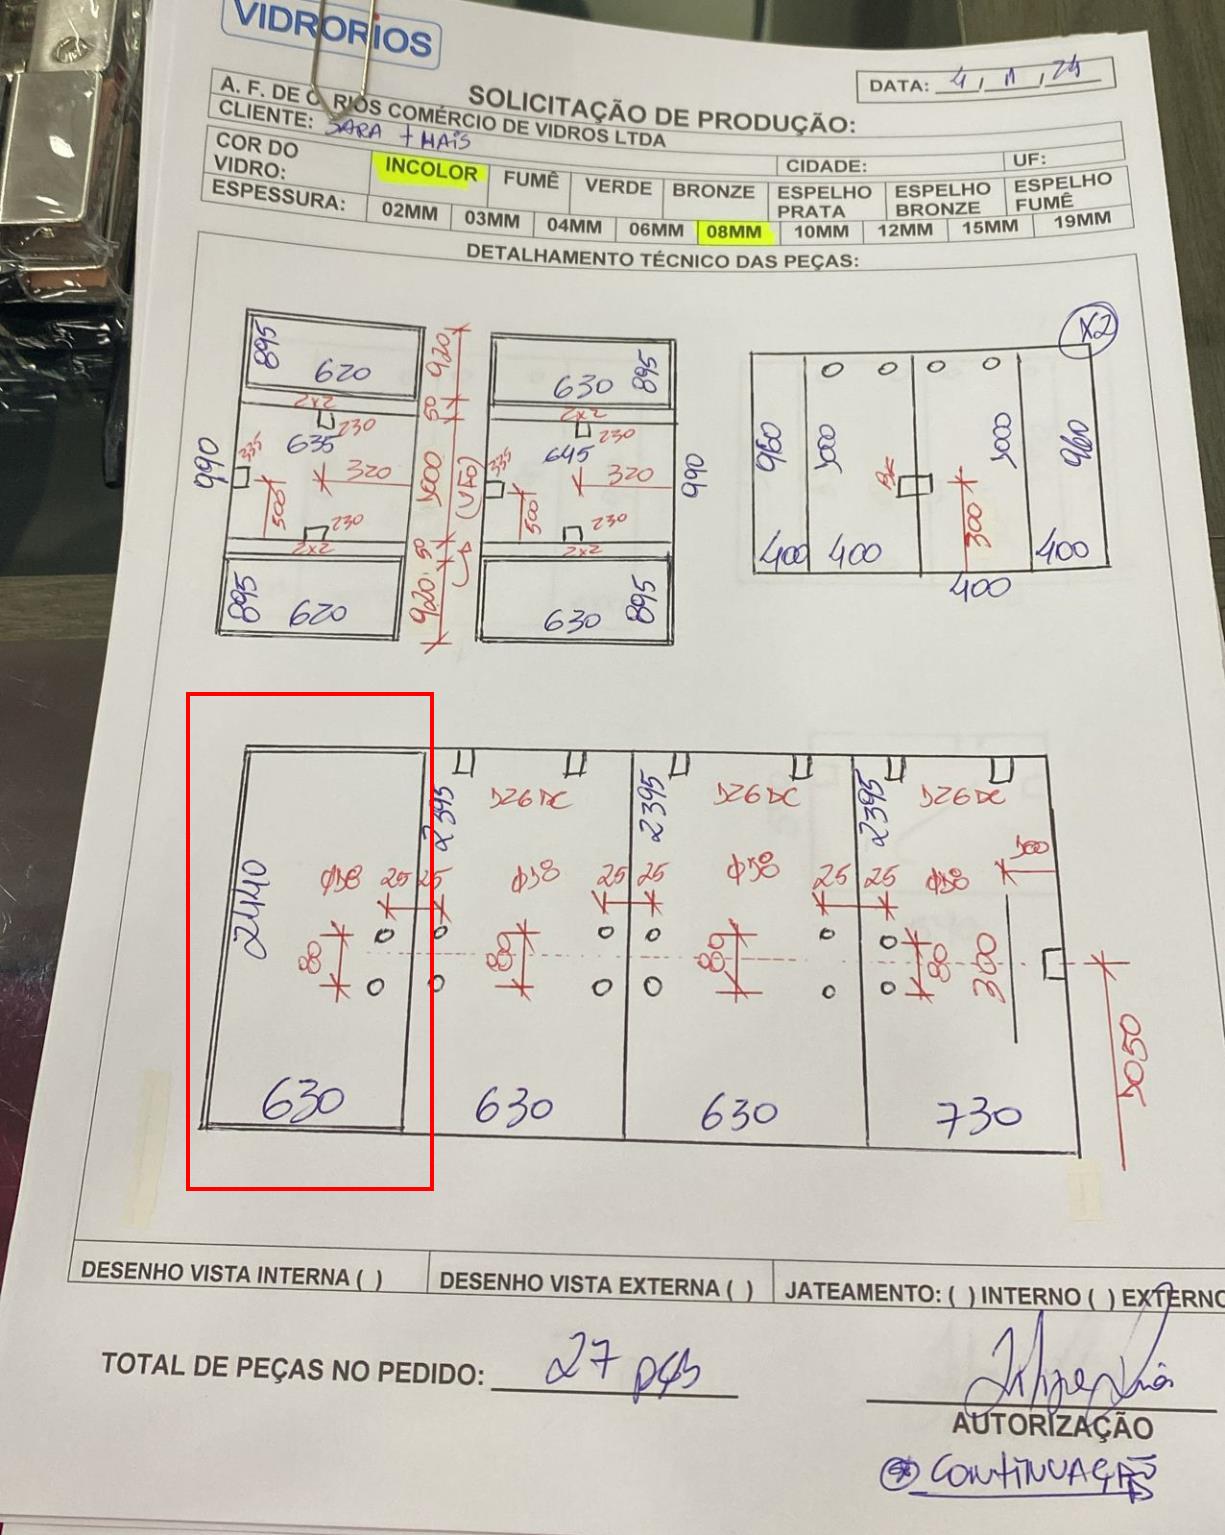 VIDRORIOS
DATA: 4 / 11 / 24
SOLICITAÇÃO DE PRODUÇÃO:
A. F. DE C. RIOS COMÉRCIO DE VIDROS LTDA
CLIENTE: SARA + MAIS
CIDADE: UF:
COR DO VIDRO: INCOLOR FUMÊ VERDE BRONZE ESPELHO PRATA ESPELHO BRONZE ESPELHO FUMÊ
ESPESSURA: 02MM 03MM 04MM 06MM 08MM 10MM 12MM 15MM 19MM
DETALHAMENTO TÉCNICO DAS PEÇAS:
895 620 920 630 895 X2
2x2 50 2x2
230 230
990 635 335 320 500 1000 (VÃO) 645 335 320 500 990
230 230
2x2 50 2x2
895 620 920 630 895
960 1000 1000 960
300
400 400 400 400
2395 2395 2395
1326 DC 1326 DC 1326 DC
2440 Ø18 25 25 Ø18 25 25 Ø18 25 25 Ø18 100
80 80 80 80 300
1050
630 630 630 730
DESENHO VISTA INTERNA ( ) DESENHO VISTA EXTERNA ( ) JATEAMENTO: ( ) INTERNO ( ) EXTERNO
TOTAL DE PEÇAS NO PEDIDO: 27 pçs
AUTORIZAÇÃO
CONTINUAÇÃO